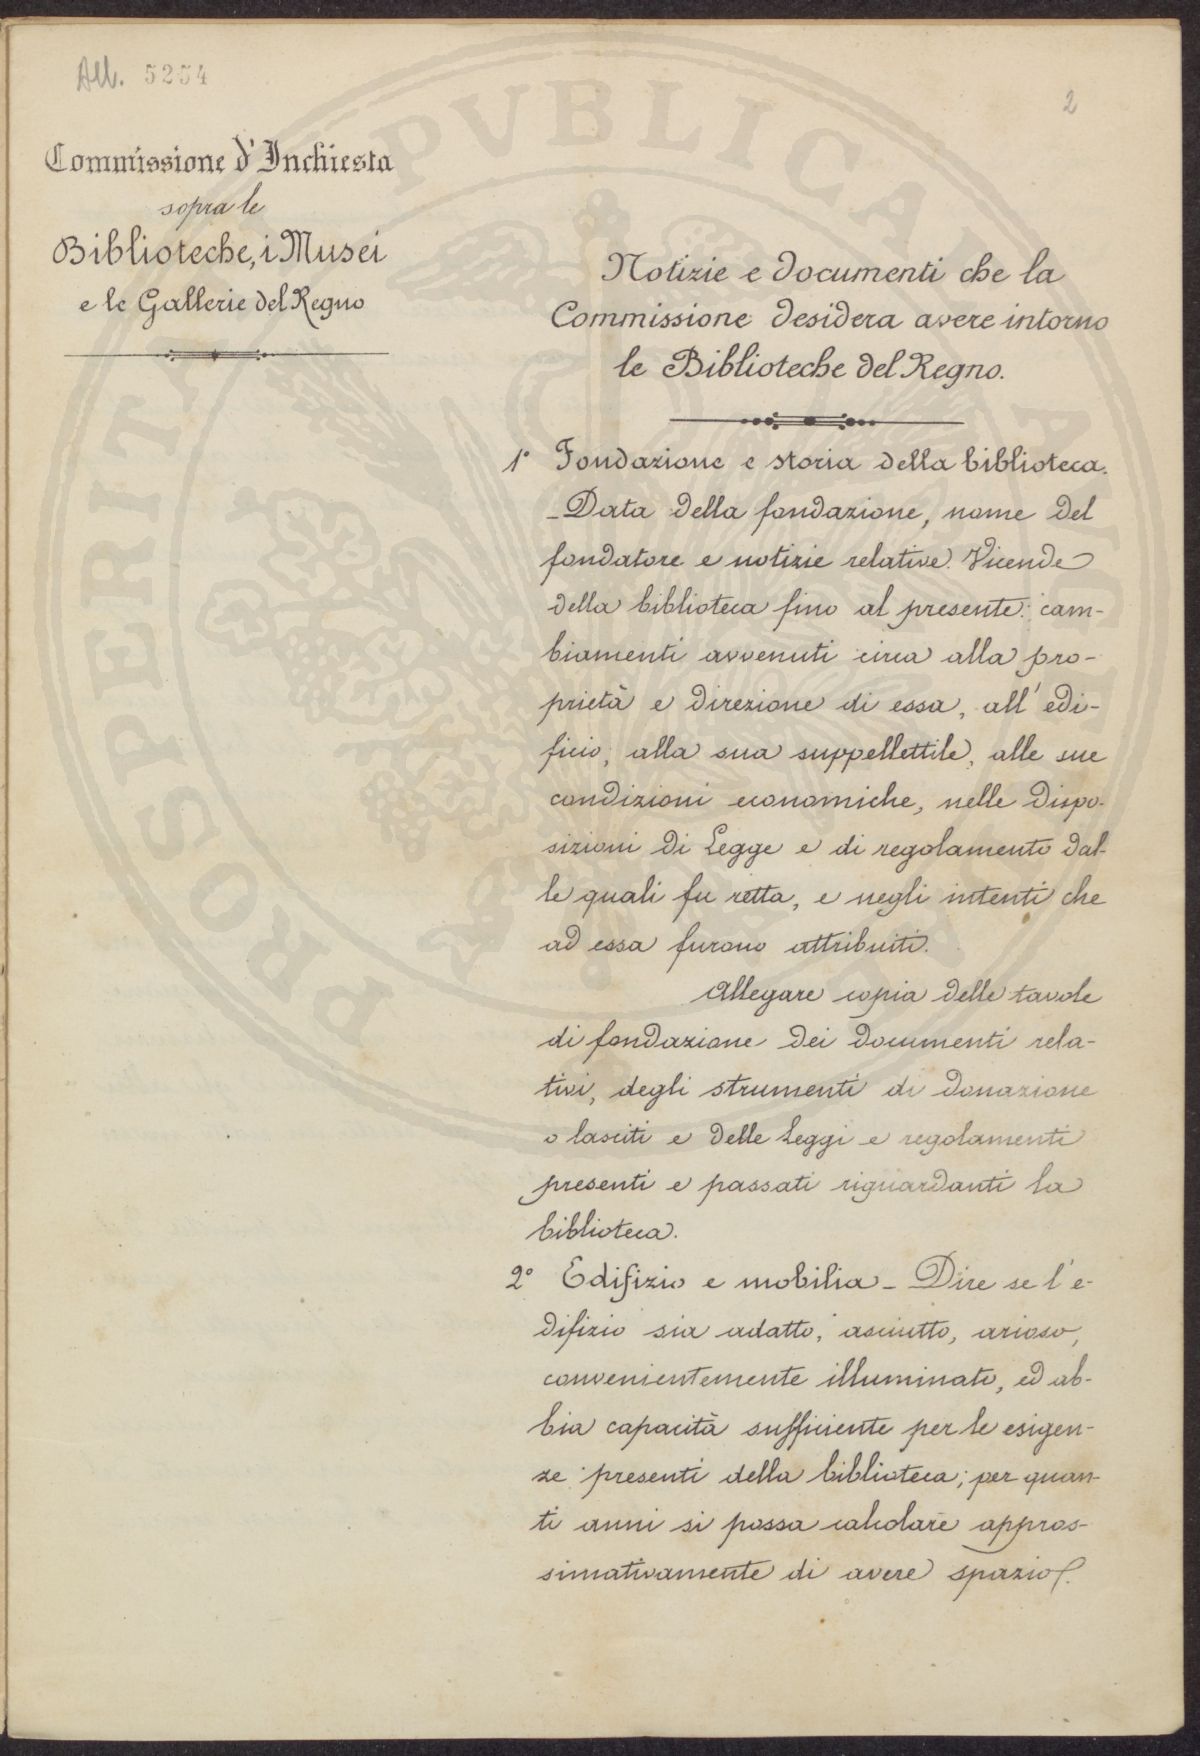 All. 5254
2
Commissione d'Inchiesta
sopra le
Biblioteche, i Musei
e le Gallerie del Regno
Notizie e documenti che la
Commissione desidera avere intorno
le Biblioteche del Regno.
1° Fondazione e storia della biblioteca.
– Data della fondazione, nome del
fondatore e notizie relative. Vicende
della biblioteca fino al presente: cam-
biamenti avvenuti circa alla pro-
prietà e direzione di essa, all' edi-
ficio, alla sua suppellettile, alle sue
condizioni economiche, nelle dispo-
sizioni di Legge e di regolamento dal-
le quali fu retta, e negli intenti che
ad essa furono attribuiti.
Allegare copia delle tavole
di fondazione dei documenti rela-
tivi, degli strumenti di donazione
o lasciti e delle Leggi e regolamenti
presenti e passati riguardanti la
biblioteca.
2° Edifizio e mobilia – Dire se l'e-
difizio sia adatto, asciutto, arioso,
convenientemente illuminato, ed ab-
bia capacità sufficiente per le esigen-
ze presenti della biblioteca; per quan-
ti anni si possa calcolare appros-
simativamente di avere spazio
PROSPERITATI PVBLICAE